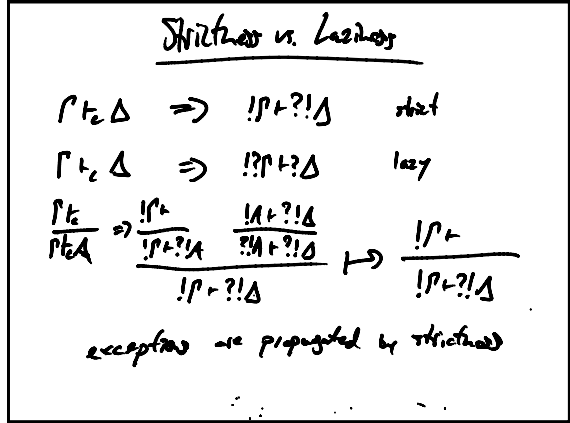 Strictness vs. Laziness
Γ ⊢c Δ ⇒ !Γ ⊢ ?!Δ strict
Γ ⊢c Δ ⇒ !?Γ ⊢ ?Δ lazy
Γ ⊢c ⇒ !Γ ⊢ !A ⊢ ?!Δ
Γ ⊢c A !Γ ⊢ ?!A ?!A ⊢ ?!Δ ↦ !Γ ⊢
!Γ ⊢ ?!Δ !Γ ⊢ ?!Δ
exceptions are propagated by strictness